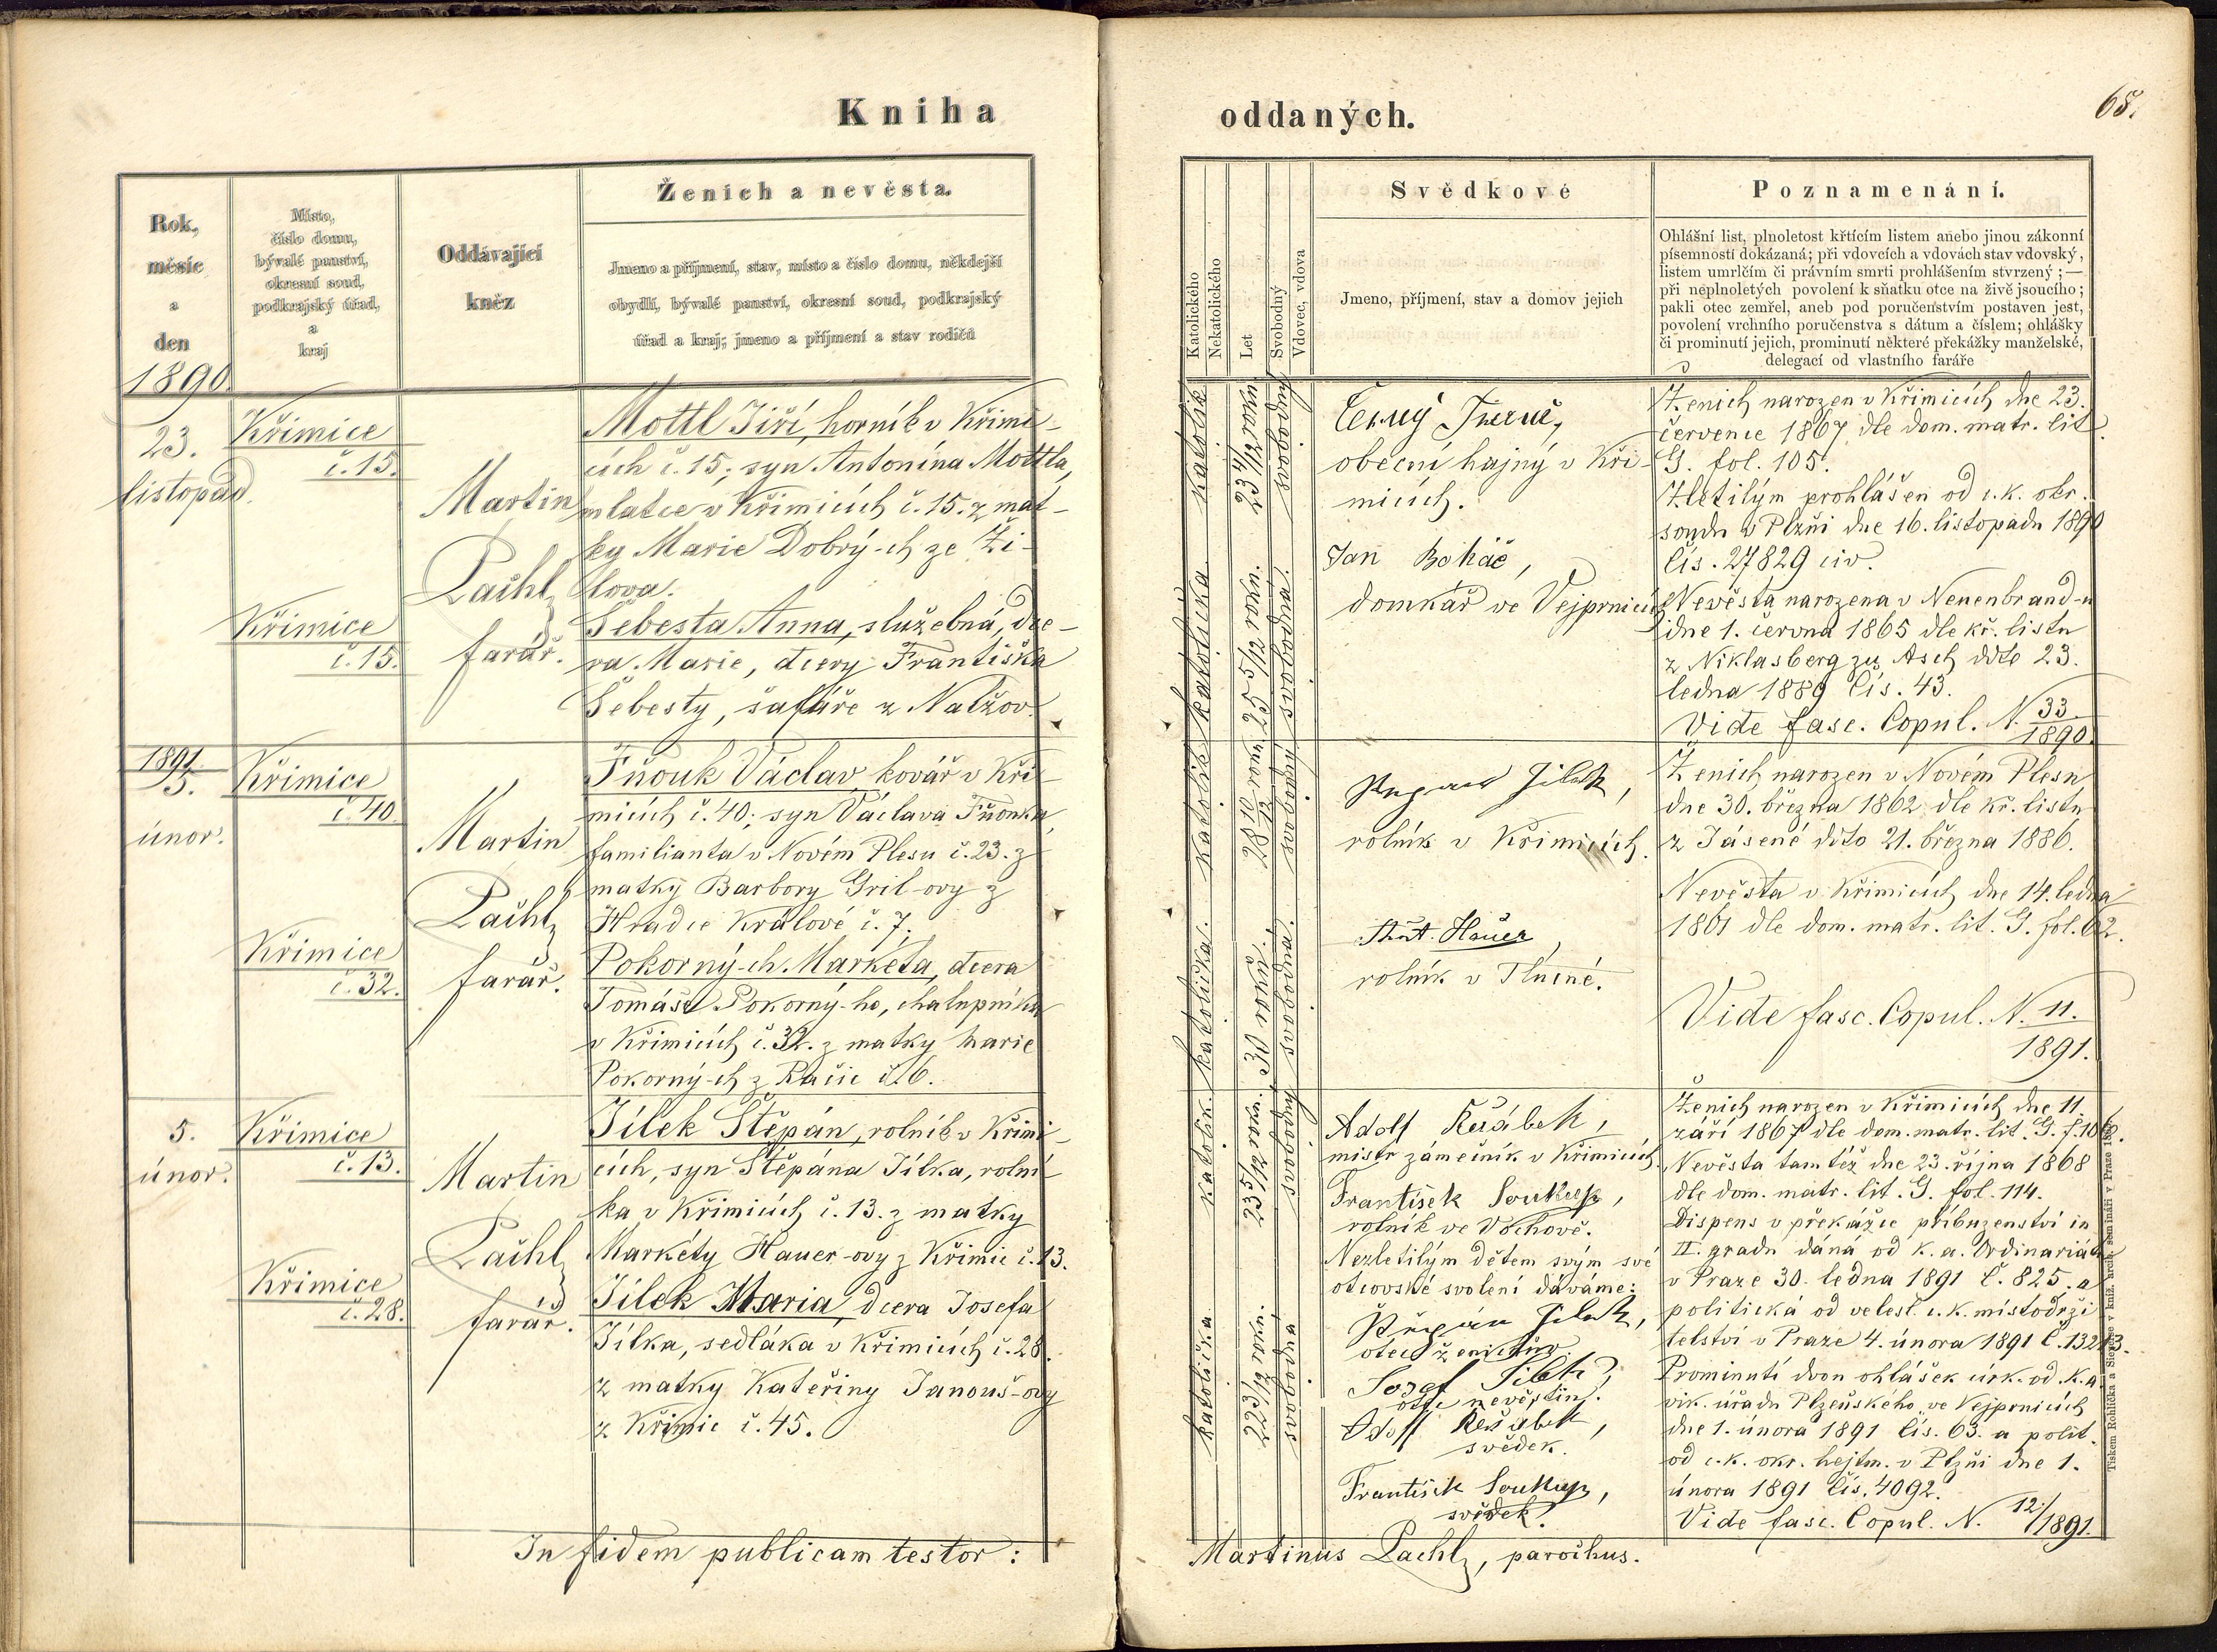 Kniha
Rok,
měsíc
a
den
1890
Místo,
číslo domu,
bývalé panství,
okresní soud,
podkrajský úřad,
a
kraj
Oddávající
kněz
Ženich a nevěsta.
Jmeno a příjmení, stav, místo a číslo domu, někdejší
obydlí, bývalé panství, okresní soud, podkrajský
úřad a kraj; jmeno a příjmení a stav rodičů
23.
listopad.
Křimice
č. 15.
Křimice
č. 15.
Martin
Lachl,
farář.
Mottl Jiří, horník v Křimi-
cích č. 15, syn Antonína Mottla,
mlatce v Křimicích č. 15. z mat-
ky Marie Dobrý-ch ze Ži-
lova.
Šebesta Anna, služebná, dce-
ra Marie, dcery Františka
Šebesty, šafáře z Nalžov
1891
5.
únor.
Křimice
č. 40.
Křimice
č. 32.
Martin
Lachl,
farář.
Fňouk Václav, kovář v Kři-
micích č. 40; syn Václava Fňouka,
familianta v Novém Plesu č. 23. z
matky Barbory Gril-ovy z
Hradce Králové č. 7.
Pokorný-ch Markéta, dcera
Tomáše Pokorný-ho, chalupníka
v Křimicích č. 32. z matky Marie
Pokorný-ch z Račic č. 6.
5.
únor.
Křimice
č. 13.
Křimice
č. 28.
Martin
Lachl,
farář.
Jílek Štěpán, rolník v Křimi-
cích, syn Štěpána Jílka, rolní-
ka v Křimicích č. 13. z matky
Markéty Hauer-ovy z Křimic č. 13.
Jílek Maria, dcera Josefa
Jílka, sedláka v Křimicích č. 28.
z matky Kateřiny Janouš-ovy
z Křimic č. 45.
In fidem publicam testor:
oddaných.
68.
Katolického
Nekatolického
Let
Svobodný
Vdovec, vdova
Svědkové
Jmeno, příjmení, stav a domov jejich
Poznamenání.
Ohlášní list, plnoletost křtícím listem anebo jinou zákonní
písemností dokázaná; při vdovcích a vdovách stav vdovský,
listem umrlčím či právním smrti prohlášením stvrzený; —
při neplnoletých povolení k sňatku otce na živě jsoucího;
pakli otec zemřel, aneb pod poručenstvím postaven jest,
povolení vrchního poručenstva s dátum a číslem; ohlášky
či prominutí jejich, prominutí některé překážky manželské,
delegací od vlastního faráře
katolík
23 4/12 roků
svobodný
katolička
25 5/12 roků.
svobodná.
Černý
obecní hajný v Kři-
micích.
Jan Boháč,
domkář ve Vejprnicích
Ženich narozen v Křimicích dne 23.
července 1867 dle dom. matr. lit.
G. fol. 105.
Zletilým prohlášen od c. k. okr.
soudu v Plzni dne 16. listopadu 1890
čís. 27829 civ.
Nevěsta narozena v Neuenbrand-u
dne 1. června 1865 dle kř. listu
z Niklasberg zu Asch ddto 23.
ledna 1889 čís. 43.
Vide fasc. Copul. N. 33/1890.
katolík
28 10/12 roků
svobodný
katolička.
30 roků.
svobodná.
Jílek,
rolník v Křimicích.
Ant. Hauer,
rolník v Tlucné.
Ženich narozen v Novém Plesu
dne 30. března 1862 dle kř. listu
z Jásené ddto 21. března 1886.
Nevěsta v Křimicích dne 14. ledna
1861 dle dom. matr. lit. G. fol. 62.
Vide fasc. Copul. N. 11.
1891.
katolík.
23 5/12 roků.
svobodný
katolička
22 3/12 roků.
svobodná
Adolf Řeřábek,
mistr zámečník v Křimicích.
František Soukup,
rolník ve Vochově.
Nezletilým dětem svým své
otcovské svolení dáváme:
Štěpán Jílek,
otec ženichův.
Josef Jílek,
otec nevěstin.
Adolf Řeřábek,
svědek.
František Soukup,
svědek.
Ženich narozen v Křimicích dne 11.
září 1867 dle dom. matr. lit. G. f. 106.
Nevěsta tamtéž dne 23. října 1868
dle dom. matr. lit. G. fol. 114.
Dispens v překážce příbuzenství in
II. gradu dáná od k. a. Ordinariátu
v Praze 30. ledna 1891 č. 825. a
politická od velesl. c. k. místodrži-
telství v Praze 4. února 1891 č. 13213.
Prominutí dvou ohlášek círk. od k. a.
vik. úřadu Plzeňského ve Vejprnicích
dne 1. února 1891 čís. 63. a polit.
od c. k. okr. hejtm. v Plzni dne 1.
února 1891 čís. 4092.
Vide fasc. Copul. N. 12/1891.
Martinus Lachl, parochus.
Tiskem Rohlíčka a Sieverse v kníž. arcib. semináři v Praze